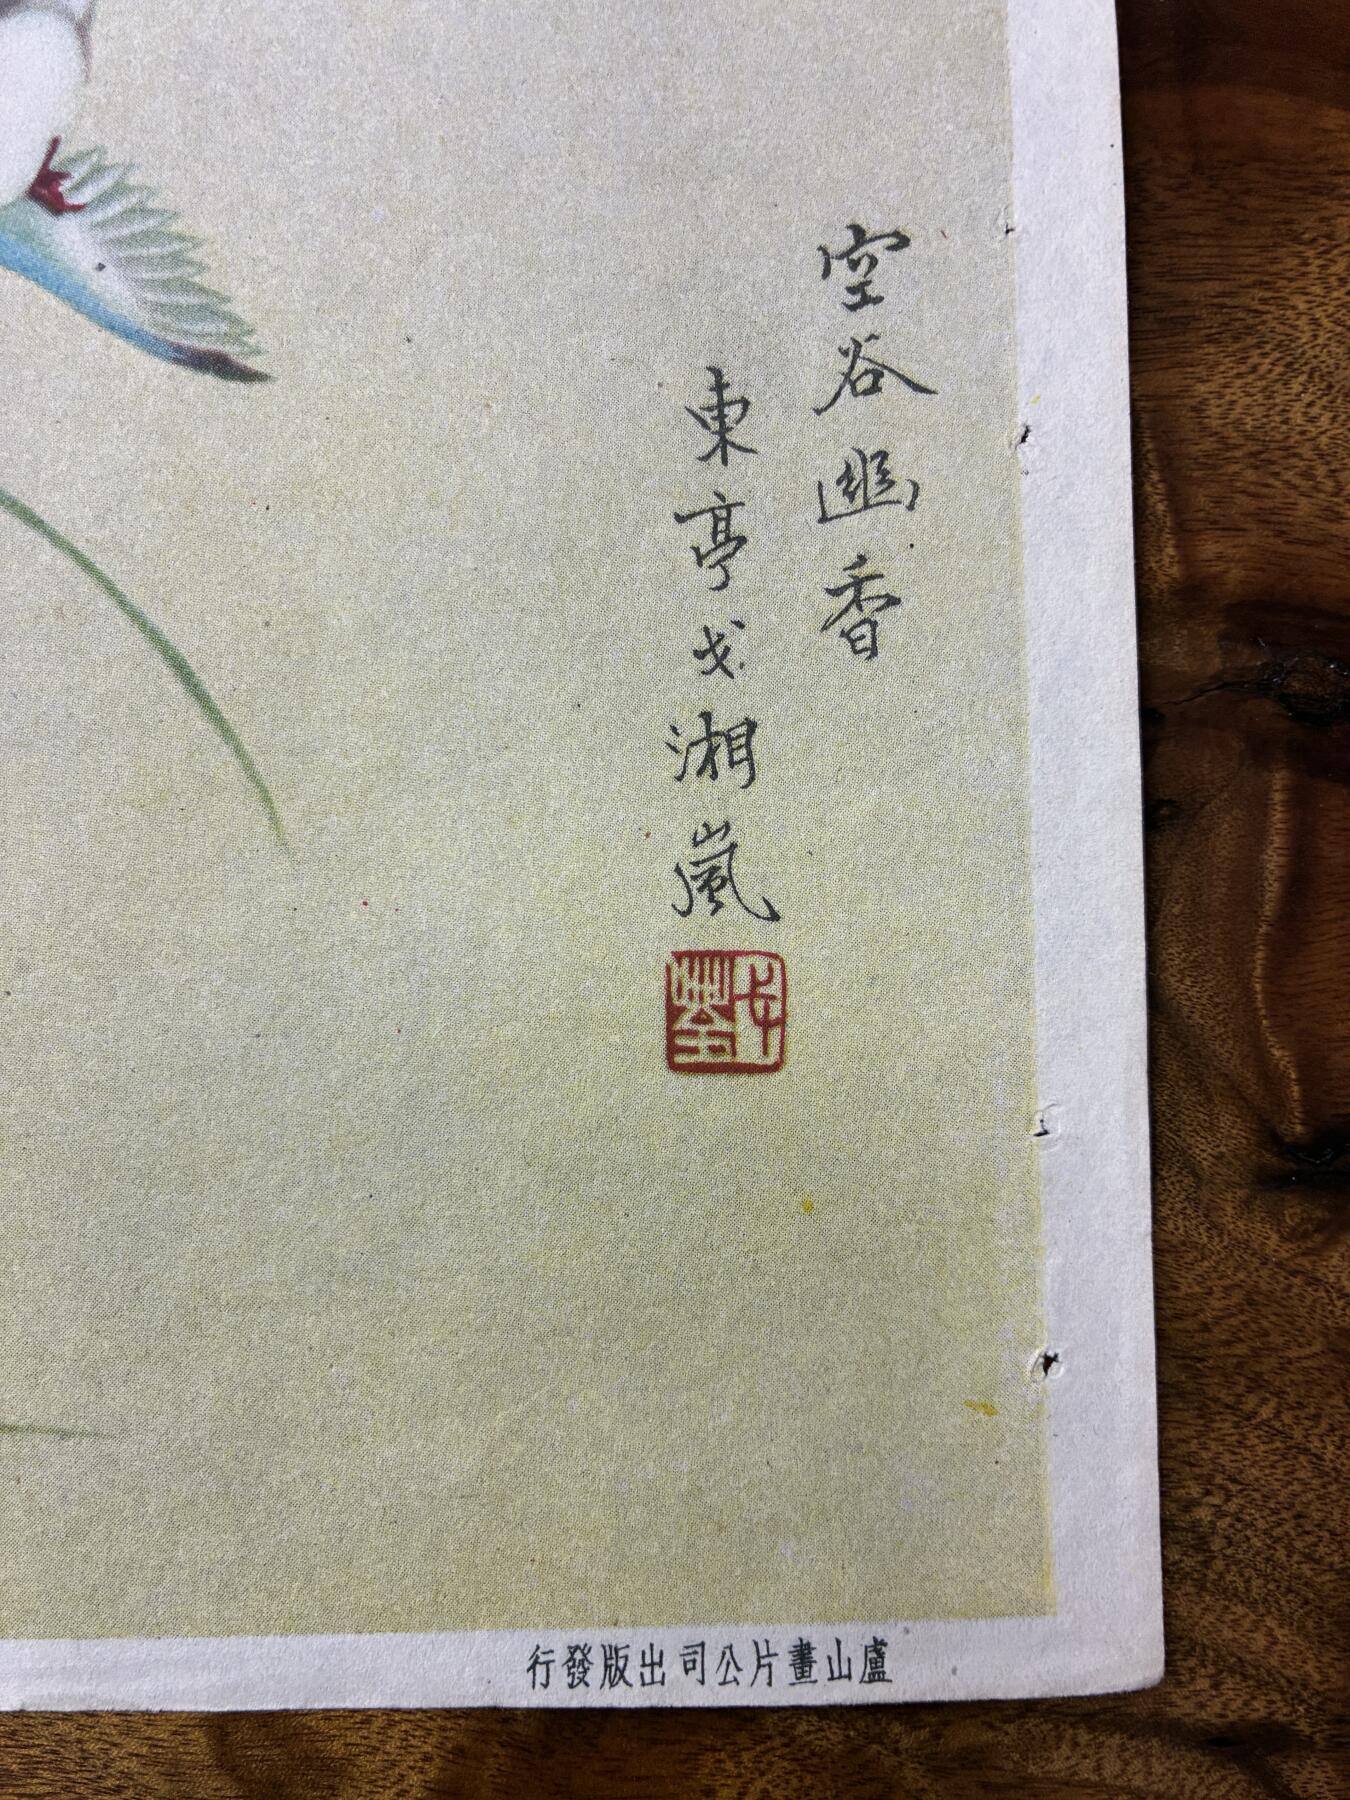 空谷幽香
東亭戈湘嵐
盧山畫片公司出版發行